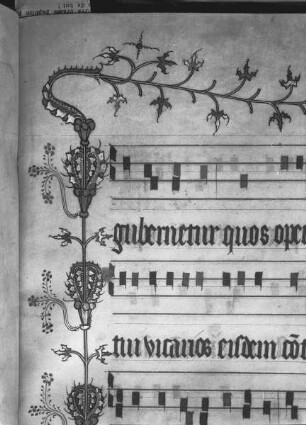 gubernetur quos ope
tui vicarios eisdem cōt